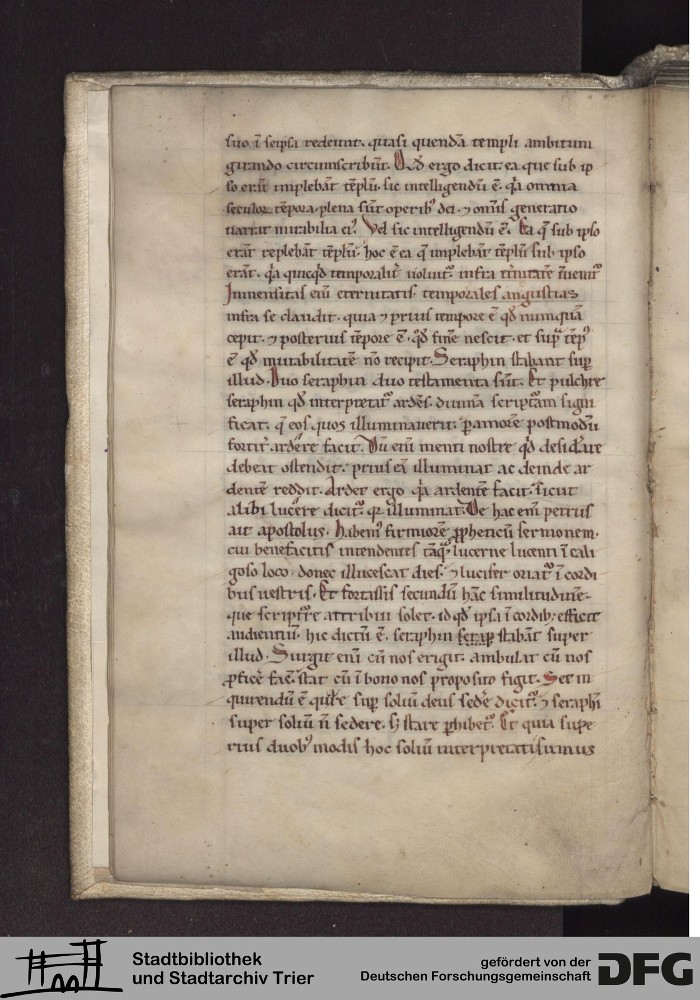 suo ī seipsa redeunt. quasi quendā templi ambitum
girando circumscribūt. Qd̄ ergo dicit. ea que sub ip
so erāt implebāt tēplū. sic intelligendū ē. qa omnia
seculoꝝ tēpora. plena sūt operibꝰ dei. ⁊ omīs generatio
narrat mirabilia eiꝰ. Vel sic intelligendū ē. Ea q̄ sub ipso
erāt replebāt tēplū. hoc ē ea q̄ implebāt tēplū sub ipso
erāt. qa quicqd temporalit̄ uoluit᷑. infra t̄nitatē īuenit᷑
Inmensitas eni eternitatis. temporales angustias
infra se claudit. quia ⁊ prius tempore ē qd̄ nunquā
cepit. ⁊ posterius tēpore ē. qd̄ finē nescit. et sup̄ tēpꝰ
ē qd̄ mutabilitatē nō recipit. Seraphin stabant sup̄
illud. Duo seraphin duo testamenta sūt. Et pulchre
seraphin qd̄ interpretat᷑ ardēs. diuinā scripturam signi
ficat. q̄ eos quos illuminauerit. ꝑ amorē postmodū
fortit̄ ardere facit. Dū eni menti nostre qd desidare
debeat ostendit. prius eā illuminat ac deinde ar
dentē reddit. Ardet ergo qa ardentē facit. sicut
alibi lucere dicit᷑. qa illuminat. De hac eni petrus
ait apostolus. Habemꝰ firmiorē ꝓpheticū sermonem.
cui benefacitis intendentes tāqā lucerne lucenti ī cali
goso loco. donec illucescat dies. ⁊ lucifer oriat᷑ ī cordi
bus uestris. Et fortassis secundū hāc similitudinē.
que scripture attribui solet. id qd̄ ipsa ī cordibꝫ efficit
audientiū. hic dictū ē. seraphin stabāt super
illud. Surgit eni cū nos erigit. ambulat cū nos
ꝓficere facit. stat cū ī bono nos proposito figit. Set in
quirendū ē quare sup̄ soliū deus sedere dicit᷑. ⁊ seraphī
super soliū n̄ sedere. sꝫ stare ꝑhibet᷑. Et quia supe
rius duobꝰ modis hoc soliū interpretati sumus
Stadtbibliothek
und Stadtarchiv Trier
gefördert von der
Deutschen Forschungsgemeinschaft
DFG